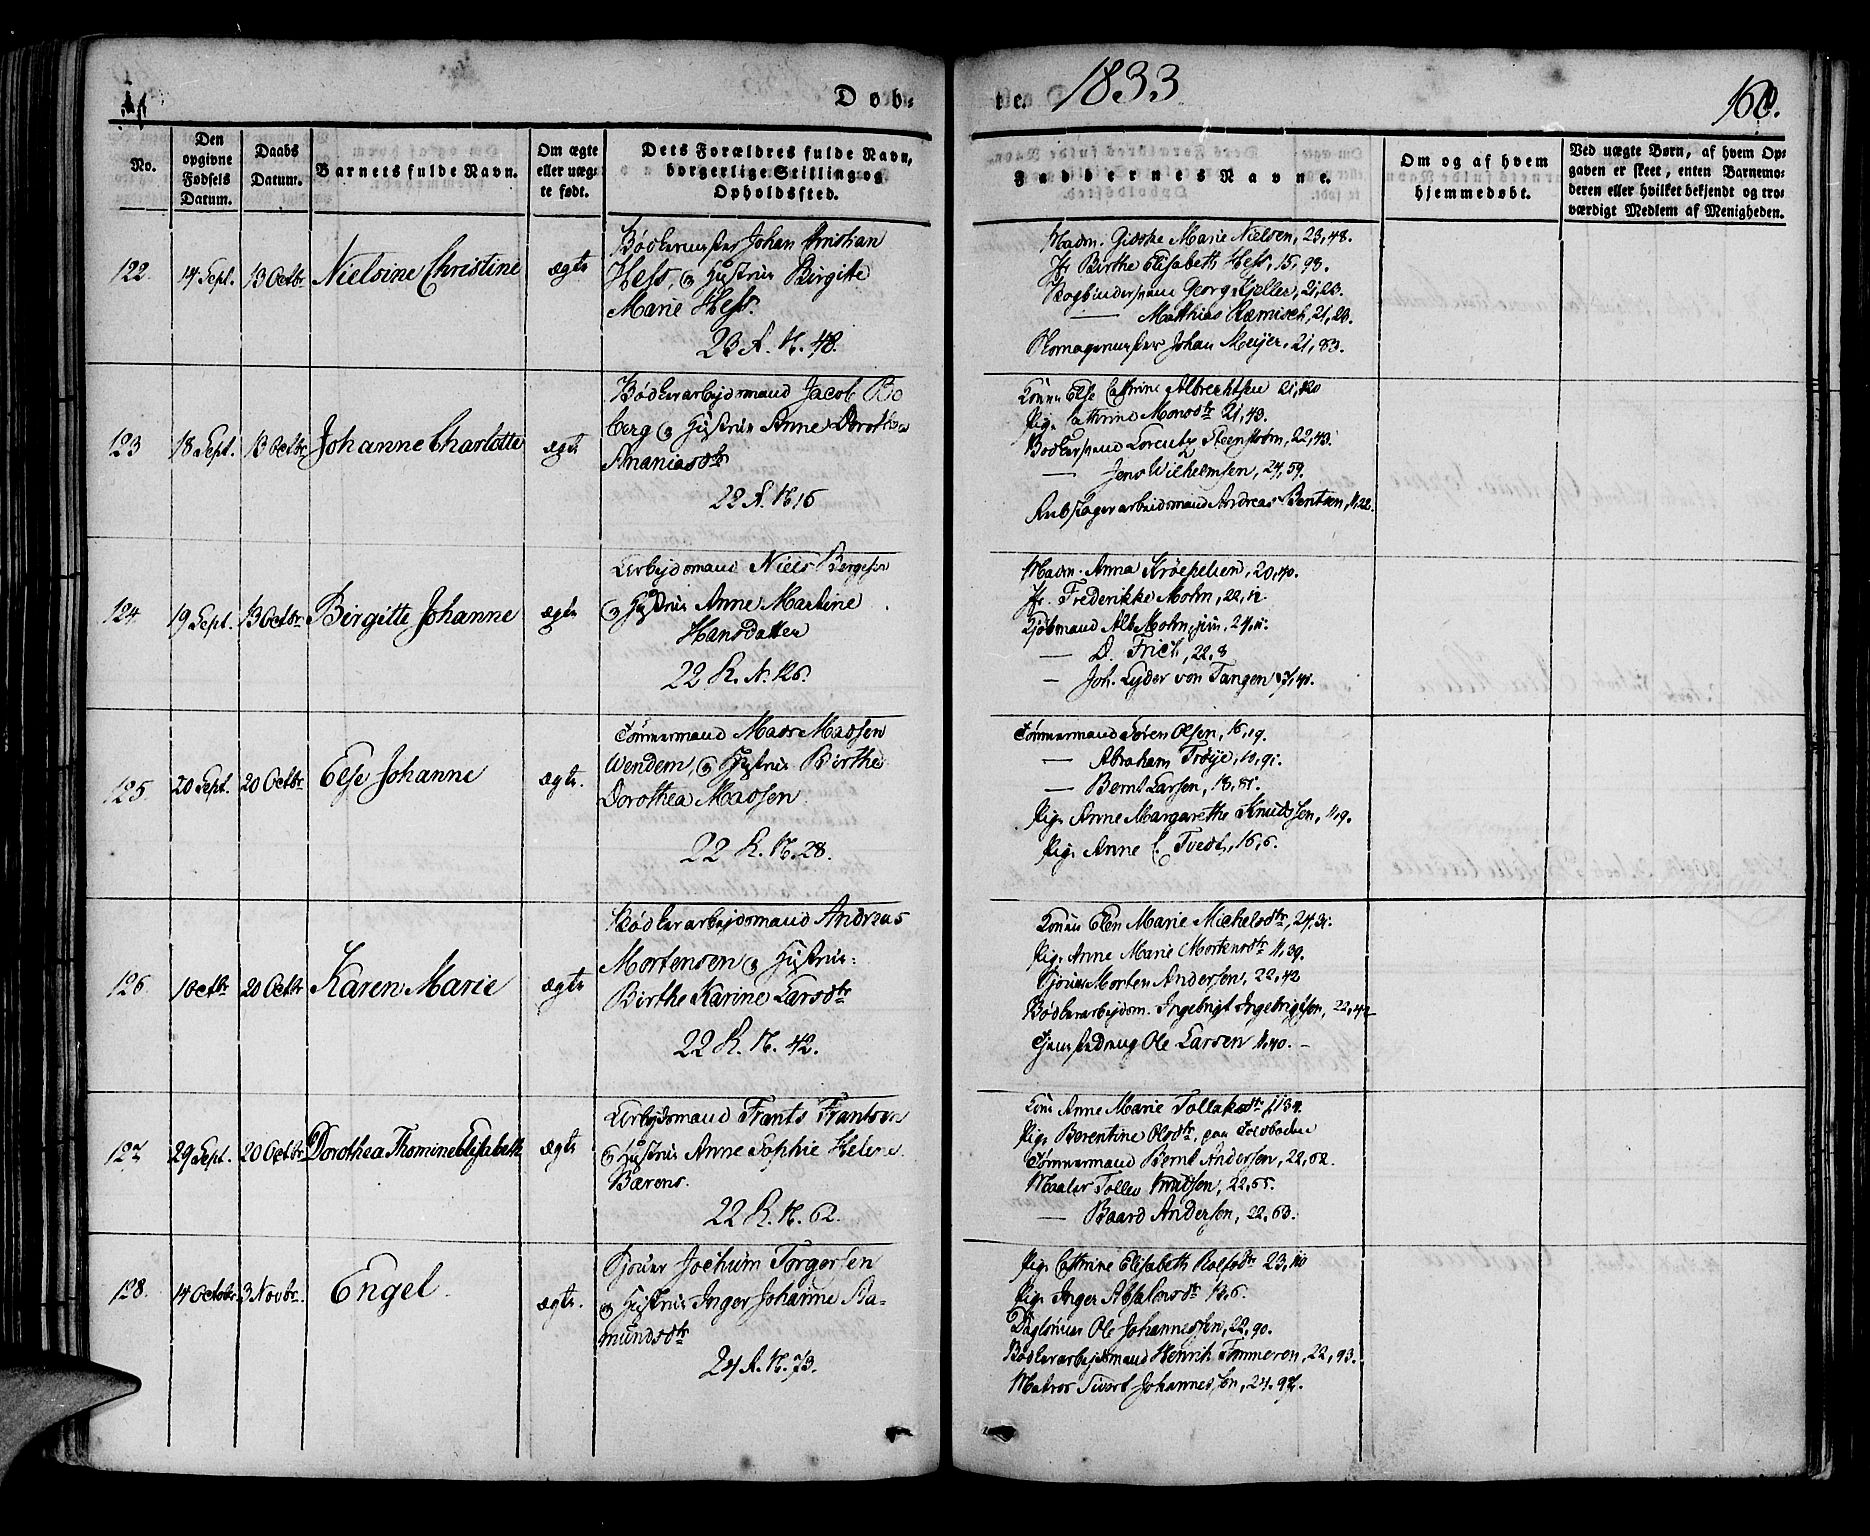 Døb-
te. 1833
160.
No.
Den opgivne Fødsels Datum.
Daabs Datum.
Barnets fulde Navn.
Om ægte eller uægte født.
Dets Forældres fulde Navn, borgerlige Stilling og Opholdssted.
Faddernes Navne.
Om og af hvem hjemmedøbt.
Ved uægte Børn, af hvem Op-
gaven er skeet, enten Barnemo-
deren eller hvilket bekjendt og tro-
værdigt Medlem af Menigheden.
122. 14 Sept. 13 Octbr Nielsine Christine ægte
Bødkermester Johan Kristian
Hess, og Hustrue Birgitte
Marie Hess.
23 R. N. 48.
Madm. Gidske Marie Nielsen, 23,48.
Jfr Birthe Elisabeth Hess, 15,93.
Bogbindersvend Georg Kjeller, 21,23.
— Matthias Ræmisch, 21,23.
Plomagemester Johan Meijer, 21,83.
123 18 Sept. 13 Octbr. Johanne Charlotte ægte
Bødkerarbejdsmand Jacob Bo
berg og Hustrue Anne Dorothea
Ananiasdtr
22 R. N. 16
Konen Else Cathrine Albrechtsen 21,120
Pige Cathrine Monsdtr 21,43.
Bødkersvend Lorentz Steenstrøm, 22,43.
— Jens Wilhelmsen, 24,59.
Arbejdsmand Andreas Bentsen, 11,22.
124. 19 Sept. 13 Octbr Birgitte Johanne ægte
Arbejdsmand Niels Bergesen
og Hustrue Anne Martine
Hansdatter
22 R. N. 126.
Madm. Anna Krøepelien, 20,40.
Jfr. Frederikke Mohn, 22,12.
Kjøbmand Alb. Mohn, jun, 24,11.
— D. Frich, 22,8
— Joh. Lyder von Tangen 17,41.
125. 20 Sept. 20 Octbr Else Johanne ægte.
Tømmermand Mads Madsen
Wendem, og Hustrue Birthe
Dorothea Madsen.
22 R. N. 28.
Tømmermand Søren Olsen, 16,19.
— Abraham Trøye, 10,91.
— Bernt Larsen, 18,81.
Pige Anne Margarethe Knudssen, 11,9.
Pige Anne C. Tvedt, 16,6.
126. 1 Octbr 20 Octbr Karen Marie ægte
Bødkerarbejdsmand Andreas
Mortensen og Hustrue
Birthe Karine Larsdtr
22 R. N. 42.
Konen Elen Marie Michelsdtr, 24,31.
Pige Anne Marie Mortensdtr 11,39.
Sjouer Morten Andersen, 22,42
Bødkerarbejdsm. Ingebrigt Ingebrigtsen, 22,42
Tjenestedreng Ole Larsen 11,40. —
127. 29 Sept. 20 Octbr. Dorothea Thomine Elisabeth ægte
Arbejdsmand Frants Frantsen
og Hustrue Anne Sophie Helene
Bærens.
22 R. N. 62.
Kone Anne Marie Tollaksdtr, 1,134.
Pige Berentine Olsdtr, paa Toldboden
Tømmermand Bernt Andersen, 22,62.
Maaler Tollev Knudsen, 22,65.
— Baard Andersen, 22,63.
128. 14 Octobr. 3 Novbr. Engel. ægte.
Sjouer Jochum Torgersen
og Hustrue Inger Johanne Aa-
mundsdtr
24 R. N. 73.
Pige Cathrine Elisabeth Roelsdtr 23,110
Pige Inger Absalonsdtr 18,6.
Dagløner Ole Johannessen, 22,90.
Bødkerarbejdsmand Henrik Immeron, 22,93.
Matros Sivert Johannessen, 24,97.